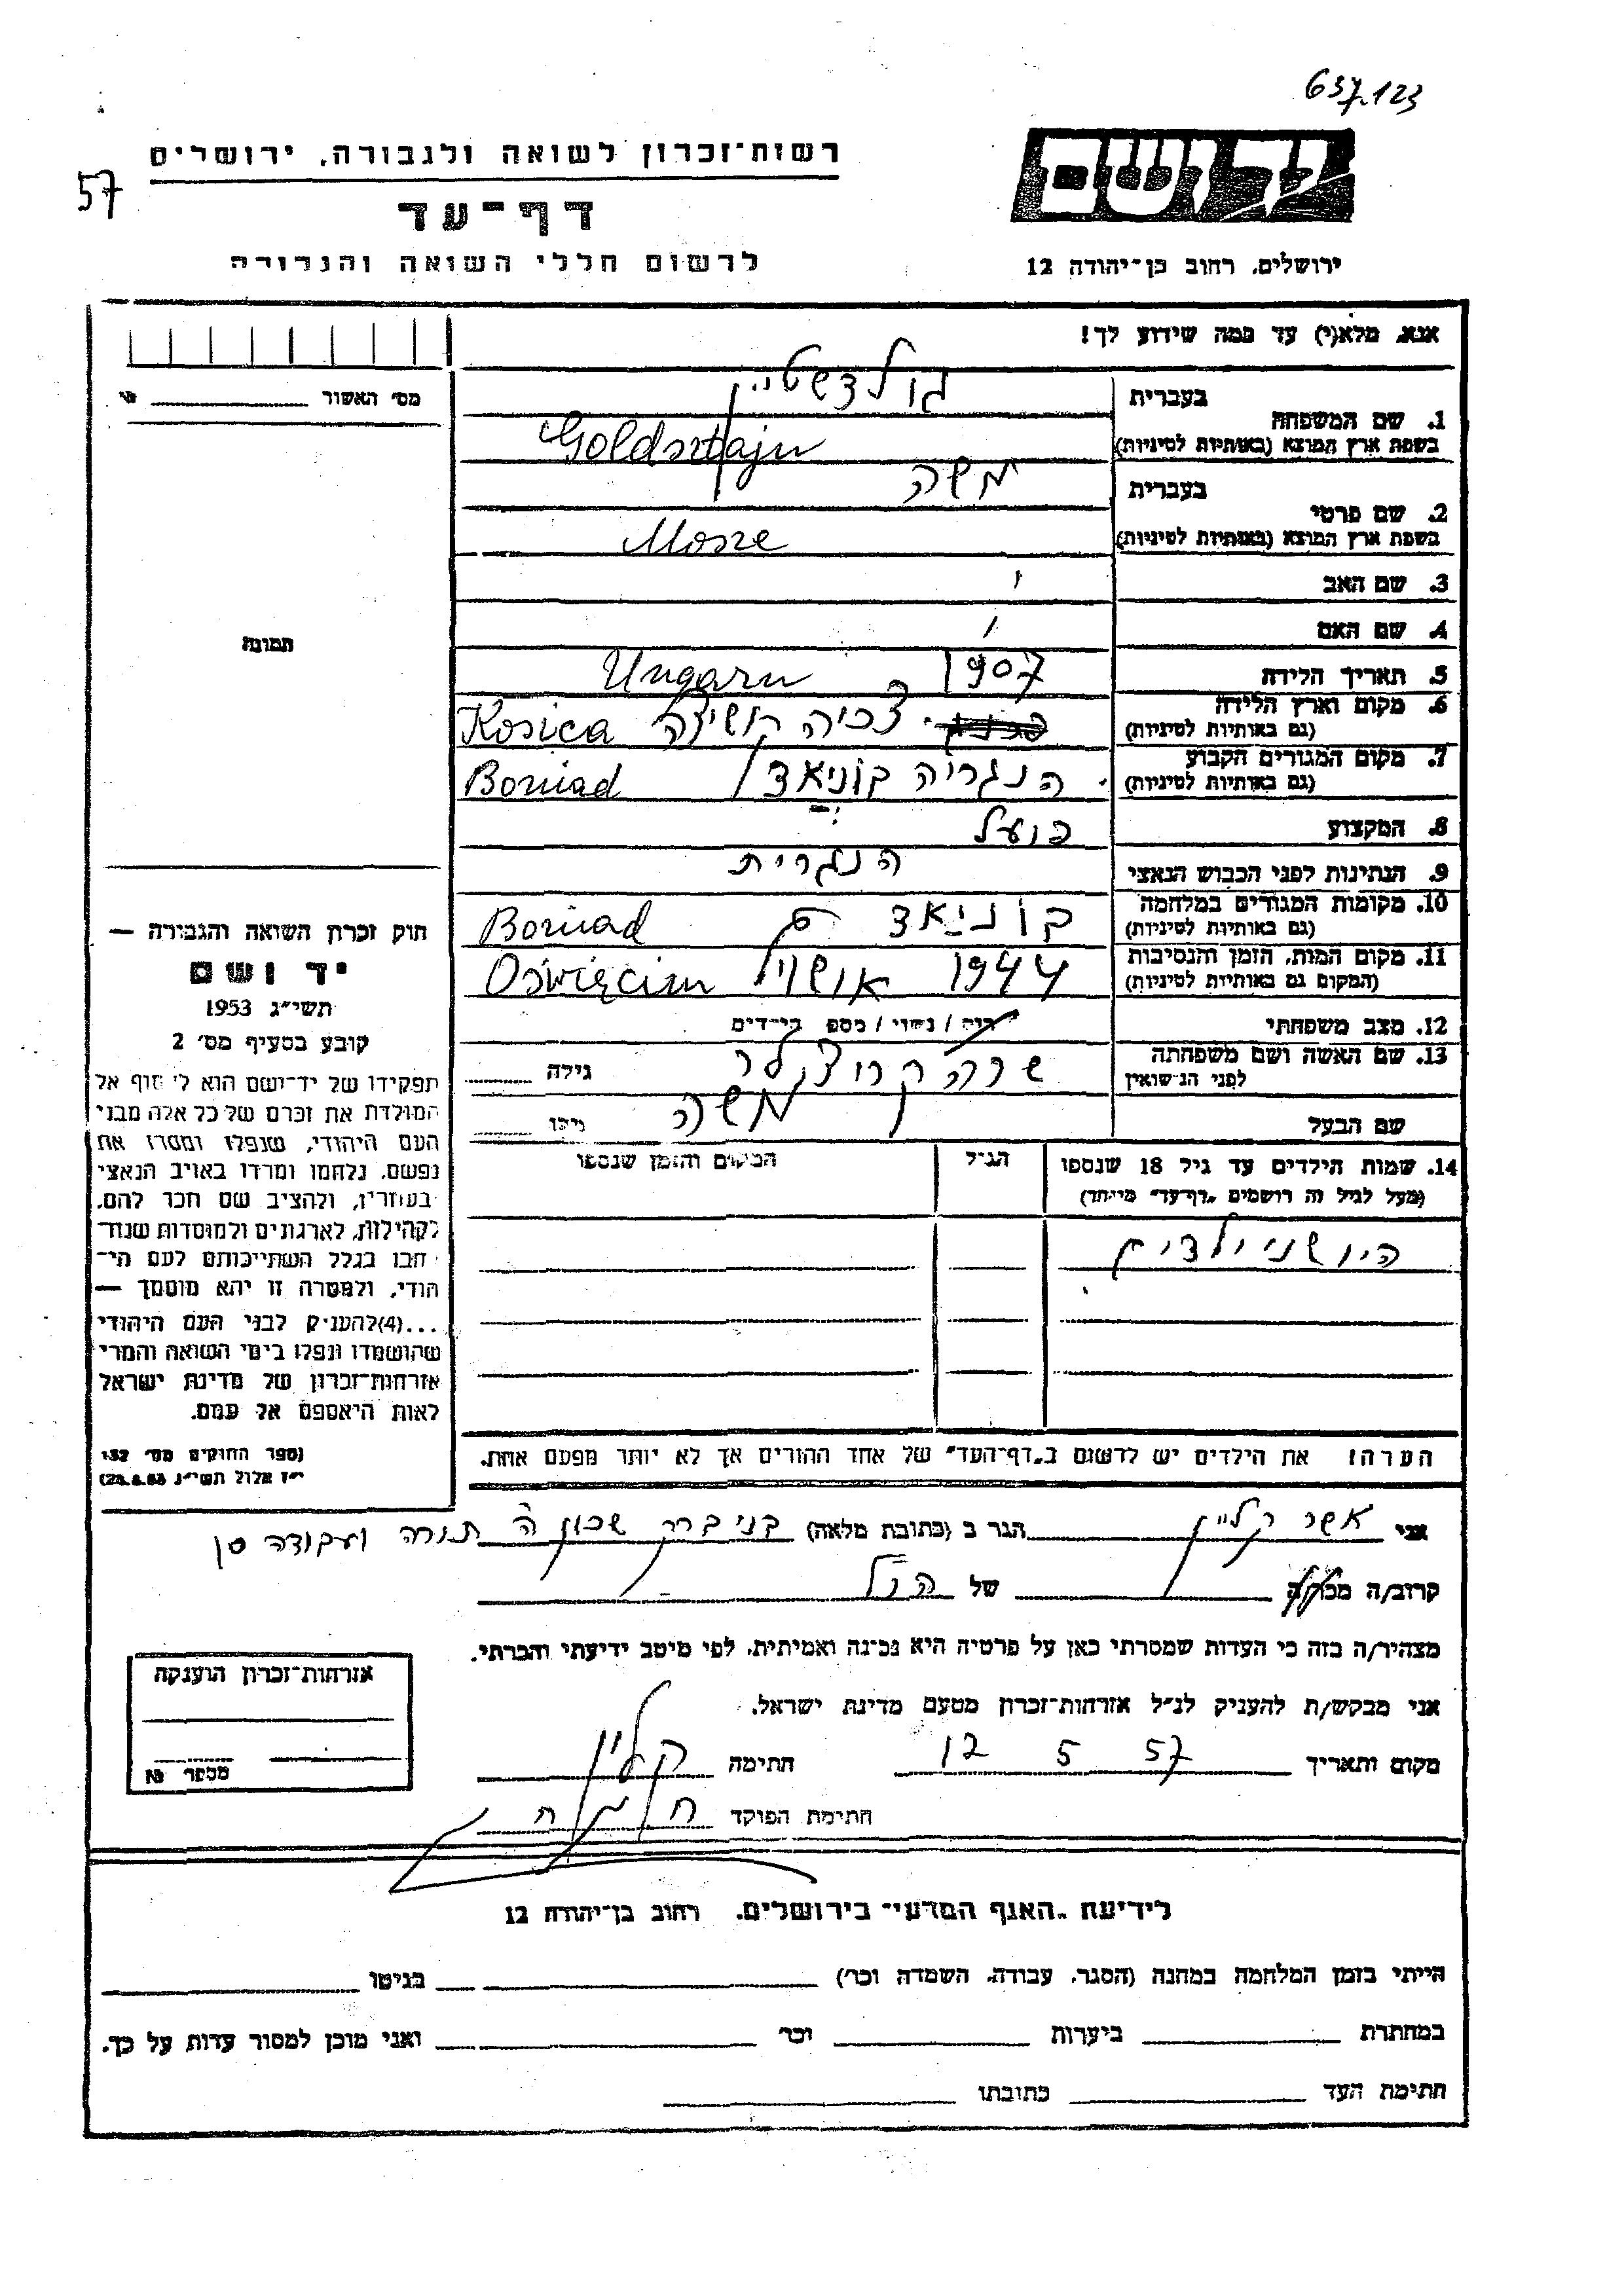 637.123
57
רשות־זכרון לשואה ולגבורה, ירושלים
יד ושם
דף־עד
לרשום חללי השואה והגבורה
ירושלים, רחוב בן־יהודה 12
אנא, מלא(י) עד כמה שידוע לך!
מס' האשור
1. שם המשפחה בעברית גולדשטיין
בשפת ארץ המוצא (באותיות לטיניות) Goldsztajn
2. שם פרטי בעברית משה
בשפת ארץ המוצא (באותיות לטיניות) Mosze
3. שם האב
4. שם האם
תמונה
5. תאריך הלידה 1907 Ungarn
6. מקום וארץ הלידה
(גם באותיות לטיניות) Kosica
7. מקום המגורים הקבוע
(גם באותיות לטיניות) הנגריה בוניאד Boniad
8. המקצוע פועל
9. הנתינות לפני הכבוש הנאצי הנגרית
10. מקומות המגורים במלחמה
(גם באותיות לטיניות) בוניאד Boniad
11. מקום המות, הזמן והנסיבות
(המקום גם באותיות לטיניות) 1944 Oświęcim
12. מצב משפחתי רוק/ נשוי/ מספר הילדים
13. שם האשה ושם משפחתה
לפני הנישואין שרה גילה
שם הבעל משה גילו
14. שמות הילדים עד גיל 18 שנספו הגיל המקום והזמן שנספו
(מעל לגיל זה רושמים "דף־עד" מיוחד)
היו שני ילדים
הערה: את הילדים יש לרשום ב"דף־העד" של אחד ההורים אך לא יותר מפעם אחת.
חוק זכרון השואה והגבורה —
יד ושם
תשי"ג 1953
קובע בסעיף מס' 2
תפקידו של יד־ושם הוא לאסוף אל
המולדת את זכרם של כל אלה מבני
העם היהודי, שנפלו ומסרו את
נפשם, נלחמו ומרדו באויב הנאצי
בעוזריו, ולהציב שם וזכר להם,
לקהילות, לארגונים ולמוסדות שנח־
רבו בגלל השתייכותם לעם הי־
הודי, ולמטרה זו יהא מוסמך —
...(4)להעניק לבני העם היהודי
שהושמדו ונפלו בימי השואה והמרי
אזרחות־זכרון של מדינת ישראל
לאות היאספם אל עמם.
(ספר החוקים מס' 132
י"ז אלול תשי"ג 28.8.53)
אני אשר קליין הגר ב (כתובת מלאה) בני ברק שכון ה תורה ועבודה
קרוב/ה מכר/ה של הנ"ל
מצהיר/ה בזה כי העדות שמסרתי כאן על פרטיה היא נכונה ואמיתית, לפי מיטב ידיעתי והכרתי.
אני מבקש/ת להעניק לנ"ל אזרחות־זכרון מטעם מדינת ישראל.
מקום ותאריך 12 5 57 חתימה קליין
חתימת הפוקד
אזרחות־זכרון הוענקה
מספר №
לידיעת "האגף המדעי" בירושלים, רחוב בן־יהודה 12
הייתי בזמן המלחמה במחנה (הסגר, עבודה, השמדה וכו') בגיטו
במחתרת ביערות וכו' ואני מוכן למסור עדות על כך.
חתימת העד כתובתו